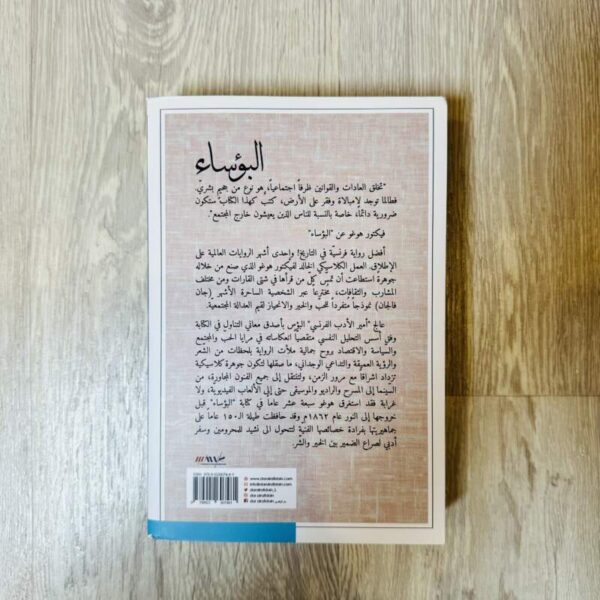 البؤساء
"تخلق العادات والقوانين ظرفاً اجتماعياً، هو نوع من جحيم بشريّ.
فطالما توجد لامبالاة وفقر على الأرض، كتبٌ كهذا الكتاب ستكون
ضرورية دائماً، خاصة بالنسبة للناس الذين يعيشون خارج المجتمع".
فيكتور هوغو عن "البؤساء"
أفضل رواية فرنسيّة في التاريخ! وإحدى أشهر الروايات العالمية على
الإطلاق. العمل الكلاسيكي الخالد لفيكتور هوغو الذي صنع من خلاله
جوهرة استطاعت أن تمسّ كلّ من قرأها في شتى القارات ومن مختلف
المشارب والثقافات، مخترعاً عبر الشخصية الساحرة الأشهر (جان
فالجان) نموذجاً متفرداً للحبّ والخير والانحياز لقيم العدالة المجتمعية.
عالج "أمير الأدب الفرنسي" البؤس بأصدق معاني التناول في الكتابة
وفق أسس التحليل النفسي متقصياً انعكاساته في مرايا الحبّ والمجتمع
والسياسة والاقتصاد بروح جمالية ملأت الرواية بلحظات من الشعر
والرؤية العميقة والتداعي الوجداني، ما صقلها لتكون جوهرة كلاسيكية
تزداد اشراقاً مع مرور الزمن، ولتنتقل إلى جميع الفنون المجاورة، من
السينما إلى المسرح والراديو والموسيقى حتى إلى الألعاب الفيديوية، ولا
غرابة فقد استغرق هوغو سبعة عشر عاماً في كتابة "البؤساء" قبل
خروجها إلى النور عام ١٨٦٢م وقد حافظت طيلة الـ١٥٠ عاماً على
جماهيريتها بفرادة خصائصها الفنية لتتحول الى نشيد للمحرومين وسفر
أدبي لصراع الضمير بين الخير والشر.
www.daralrafidain.com
info@daralrafidain.com
daralrafidain_l
dar.alrafidain